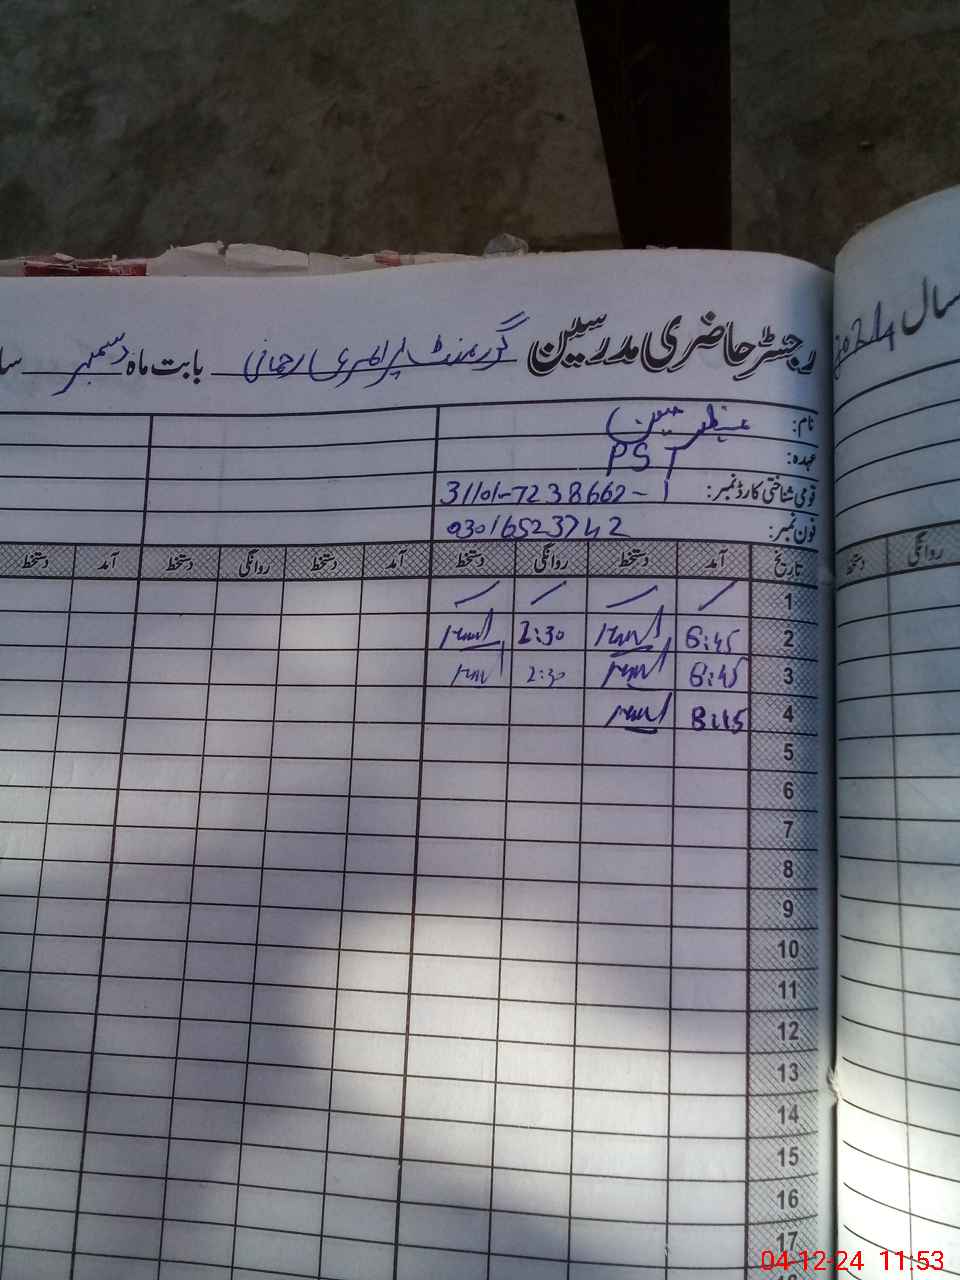 رجسٹر حاضری مدرسین گورنمنٹ پرائمری رحمانی بابت ماہ دسمبر سا
سال 2024
نام: حسین
عہدہ: PST
قومی شناختی کارڈ نمبر: 31101-7238662-1
فون نمبر: 03016523742
تاریخ آمد دستخط روانگی دستخط آمد دستخط روانگی دستخط آمد دستخط
روانگی دستخط
1
2 6:45 2:30
3 6:45 2:30
4 8:45
5
6
7
8
9
10
11
12
13
14
15
16
17
04-12-24 11:53